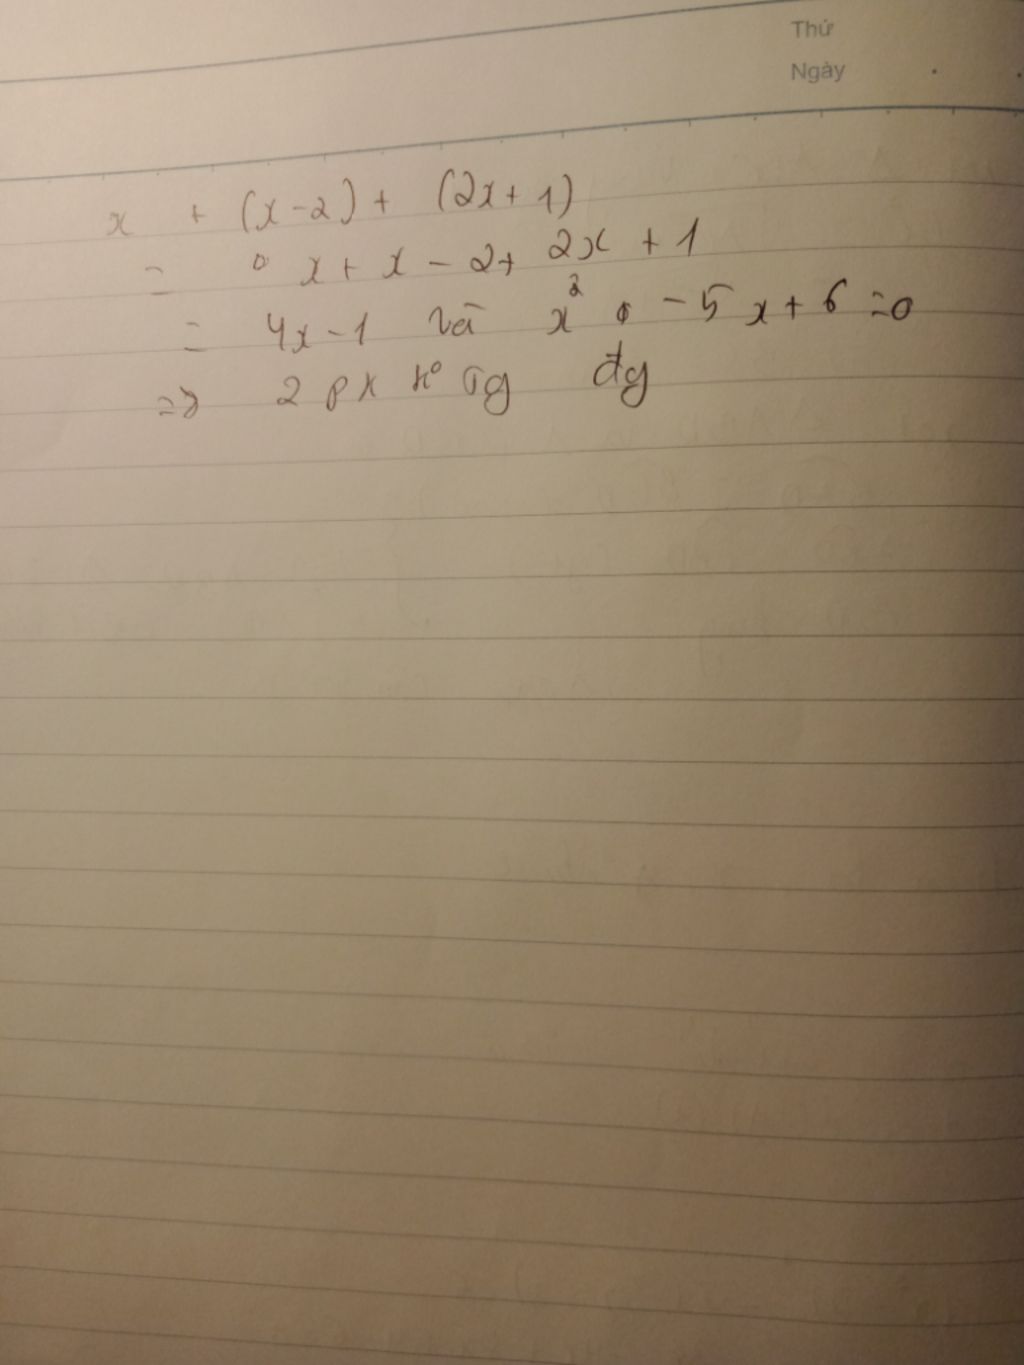 Thứ
Ngày
x + (x-2) + (2x+1)
= x + x - 2 + 2x + 1
= 4x - 1 và x² - 5x + 6 = 0
=> 2 k⁰ đg